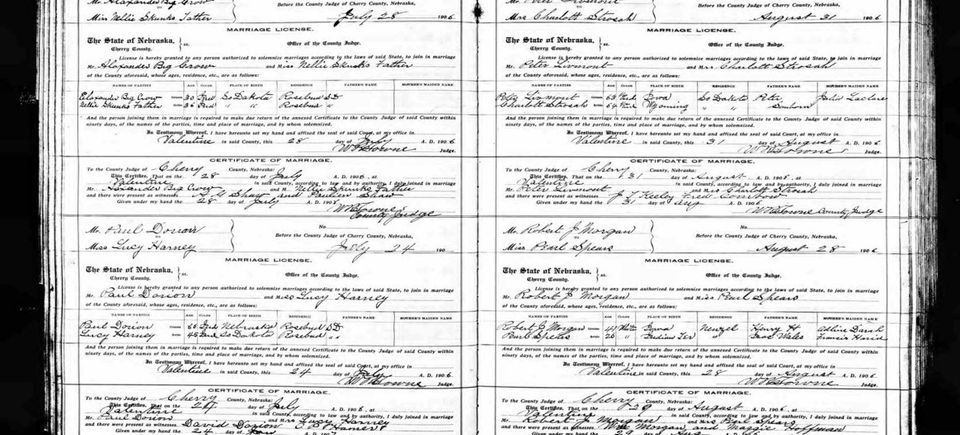 Mr. Alexander Big Crow
Miss Nellie Skunks Father
Before the County Judge of Cherry County, Nebraska
July 28 1906
MARRIAGE LICENSE.
The State of Nebraska, } ss.
Cherry County.
Office of the County Judge.
License is hereby granted to any person authorized to solemnize marriages according to the laws of said State, to join in marriage
Mr. Alexander Big Crow and Miss Nellie Skunks Father
of the County aforesaid, whose ages, residence, etc., are as follows:
NAMES OF PARTIES AGE COLOR PLACE OF BIRTH RESIDENCE FATHER'S NAME MOTHER'S MAIDEN NAME
Alexander Big Crow 30 Red So Dakota Rosebud SD
Nellie Skunks Father Red " Rosebud "
And the person joining them in marriage is required to make due return of the annexed Certificate to the County Judge of said County within
ninety days, of the names of the parties, time and place of marriage, and by whom solemnized.
In Testimony Whereof, I have hereunto set my hand and affixed the seal of said Court, at my office in
Valentine in said County, this 28 day of July A. D. 1906
W R Towne Judge.
CERTIFICATE OF MARRIAGE.
Cherry County, Nebraska:
This Certifies, That on the 28 day of July A. D. 1906, at
Valentine in said County, according to law and by authority, I duly joined in marriage
Mr. Alexander Big Crow and M Nellie Skunks Father
and there were present as witnesses Shaw and Shaw
Given under my hand the 28 day of July A. D. 190
W R Towne
County Judge
No
Mr. Paul Dorion
Miss Lucy Harney
Before the County Judge of Cherry County, Nebraska
July 24 190
MARRIAGE LICENSE.
The State of Nebraska, } ss.
Cherry County.
Office of the County Judge.
License is hereby granted to any person authorized to solemnize marriages according to the laws of said State, to join in marriage
Mr. Paul Dorion and Miss Lucy Harney
of the County aforesaid, whose ages, residence, etc., are as follows:
NAMES OF PARTIES AGE COLOR PLACE OF BIRTH RESIDENCE FATHER'S NAME MOTHER'S MAIDEN NAME
Paul Dorion 66 Red Nebraska Rosebud SD
Lucy Harney Red So Dakota Rosebud "
And the person joining them in marriage is required to make due return of the annexed Certificate to the County Judge of said County within
ninety days, of the names of the parties, time and place of marriage, and by whom solemnized.
In Testimony Whereof, I have hereunto set my hand and affixed the seal of said Court, at my office in
Valentine in said County, this 24 day of July A. D. 1906
W R Towne Judge.
CERTIFICATE OF MARRIAGE.
Cherry County, Nebraska:
This Certifies, That on the 24 day of July A. D. 1906, at
Valentine in said County, according to law and by authority, I duly joined in marriage
Mr. Paul Dorion and Miss Lucy Harney
and there were present as witnesses David Dorion
Given under my hand the 24 day of
Mr. Peter Livmont
Mrs Charlott Strosah
Before the County Judge of Cherry County, Nebraska
August 31 1906
MARRIAGE LICENSE.
The State of Nebraska, } ss.
Cherry County.
Office of the County Judge.
License is hereby granted to any person authorized to solemnize marriages according to the laws of said State, to join in marriage
Mr. Peter Livmont and Mrs Charlott Strosah
of the County aforesaid, whose ages, residence, etc., are as follows:
NAMES OF PARTIES AGE COLOR PLACE OF BIRTH RESIDENCE FATHER'S NAME MOTHER'S MAIDEN NAME
Peter Livmont 63 Iowa So Dakota Peter
Charlott Strosah 54 Wyoming " "
And the person joining them in marriage is required to make due return of the annexed Certificate to the County Judge of said County within
ninety days, of the names of the parties, time and place of marriage, and by whom solemnized.
In Testimony Whereof, I have hereunto set my hand and affixed the seal of said Court, at my office in
Valentine in said County, this 31 day of August A. D. 1906
W R Towne Judge.
CERTIFICATE OF MARRIAGE.
Cherry County, Nebraska:
This Certifies, That on the 31 day of August A. D. 1906, at
Valentine in said County, according to law and by authority, I duly joined in marriage
Mr. Peter Livmont and Mrs Charlott Strosah
and there were present as witnesses J T Keeley Fred
Given under my hand the 31 day of Aug A. D. 190
W R Towne County Judge
No
Mr. Robert J Morgan
Miss Pearl Spears
Before the County Judge of Cherry County, Nebraska
August 28 1906
MARRIAGE LICENSE.
The State of Nebraska, } ss.
Cherry County.
Office of the County Judge.
License is hereby granted to any person authorized to solemnize marriages according to the laws of said State, to join in marriage
Mr. Robert J Morgan and Miss Pearl Spears
of the County aforesaid, whose ages, residence, etc., are as follows:
NAMES OF PARTIES AGE COLOR PLACE OF BIRTH RESIDENCE FATHER'S NAME MOTHER'S MAIDEN NAME
Robert J Morgan White Iowa Nenzel Henry H
Pearl Spears 20 " Indian Ter
And the person joining them in marriage is required to make due return of the annexed Certificate to the County Judge of said County within
ninety days, of the names of the parties, time and place of marriage, and by whom solemnized.
In Testimony Whereof, I have hereunto set my hand and affixed the seal of said Court, at my office in
Valentine in said County, this 28 day of August A. D. 1906
W R Towne Judge.
CERTIFICATE OF MARRIAGE.
Cherry County, Nebraska:
This Certifies, That on the 29 day of August A. D. 1906, at
Valentine in said County, according to law and by authority, I duly joined in marriage
Mr. Robert J Morgan and Miss Pearl Spears
and there were present as witnesses Morgan and Maggie Hoffman
Given under my hand the 29 day of Aug